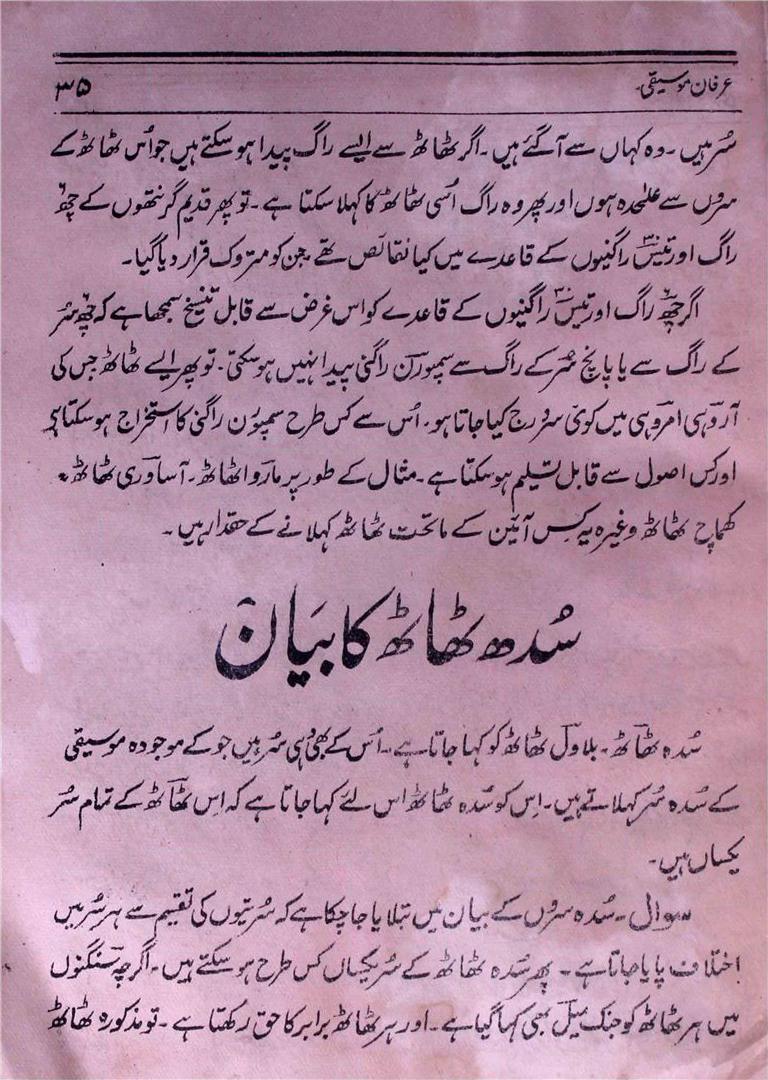 عرفان موسیقی۔ ۳۵
سُر ہیں۔ وہ کہاں سے آگئے ہیں۔ اگر ٹھاٹھ سے ایسے راگ پیدا ہوسکتے ہیں جو اُس ٹھاٹھ کے
سروں سے علٰحدہ ہوں اور پھر وہ راگ اُسی ٹھاٹھ کا کہلا سکتا ہے۔ تو پھر قدیم گرنتھوں کے چھ ۶
راگ اور تیس ۳۰ راگنیوں کے قاعدے میں کیا نقائص تھے جن کو متروک قرار دیا گیا۔
اگر چھ ۶ راگ اور تیس ۳۰ راگنیوں کے قاعدے کو اس غرض سے قابل تنسیخ سمجھا ہے کہ چھ ۶ سُر
کے راگ سے یا پانچ سُر کے راگ سے سمپورن راگنی پیدا نہیں ہوسکتی۔ تو پھر ایسے ٹھاٹھ جس کی
آروہی امروہی میں کوئی سُر ورج کیا جاتا ہو۔ اُس سے کس طرح سمپورن راگنی کا استخراج ہوسکتا ہے
اور کس اصول سے قابل تسلیم ہوسکتا ہے۔ مثال کے طور پر ماروا ٹھاٹھ۔ آساوری ٹھاٹھ۔
کھماچ ٹھاٹھ وغیرہ یہ کس آئین کے ماتحت ٹھاٹھ کہلانے کے حقدار ہیں۔
سُدھ ٹھاٹھ کا بیان
سُدہ ٹھاٹھ۔ بلاول ٹھاٹھ کو کہا جاتا ہے۔ اُس کے بھی وُہی سُر ہیں جو کے موجودہ موسیقی
کے سُدہ سُر کہلاتے ہیں۔ اِس کو سُدہ ٹھاٹھ اس لئے کہا جاتا ہے کہ اِس ٹھاٹھ کے تمام سُر
یکساں ہیں۔
سوال۔ سُدہ سروں کے بیان میں بتلایا جاچکا ہے کہ سُرتیوں کی تقسیم سے ہر سُر میں
اختلاف پایا جاتا ہے۔ پھر سُدہ ٹھاٹھ کے سُر یکساں کس طرح ہوسکتے ہیں۔ اگرچہ سنگنوں
میں ہر ٹھاٹھ کو جنک میل بھی کہا گیا ہے۔ اور ہر ٹھاٹھ برابر کا حق رکھتا ہے۔ تو مذکورہ ٹھاٹھ